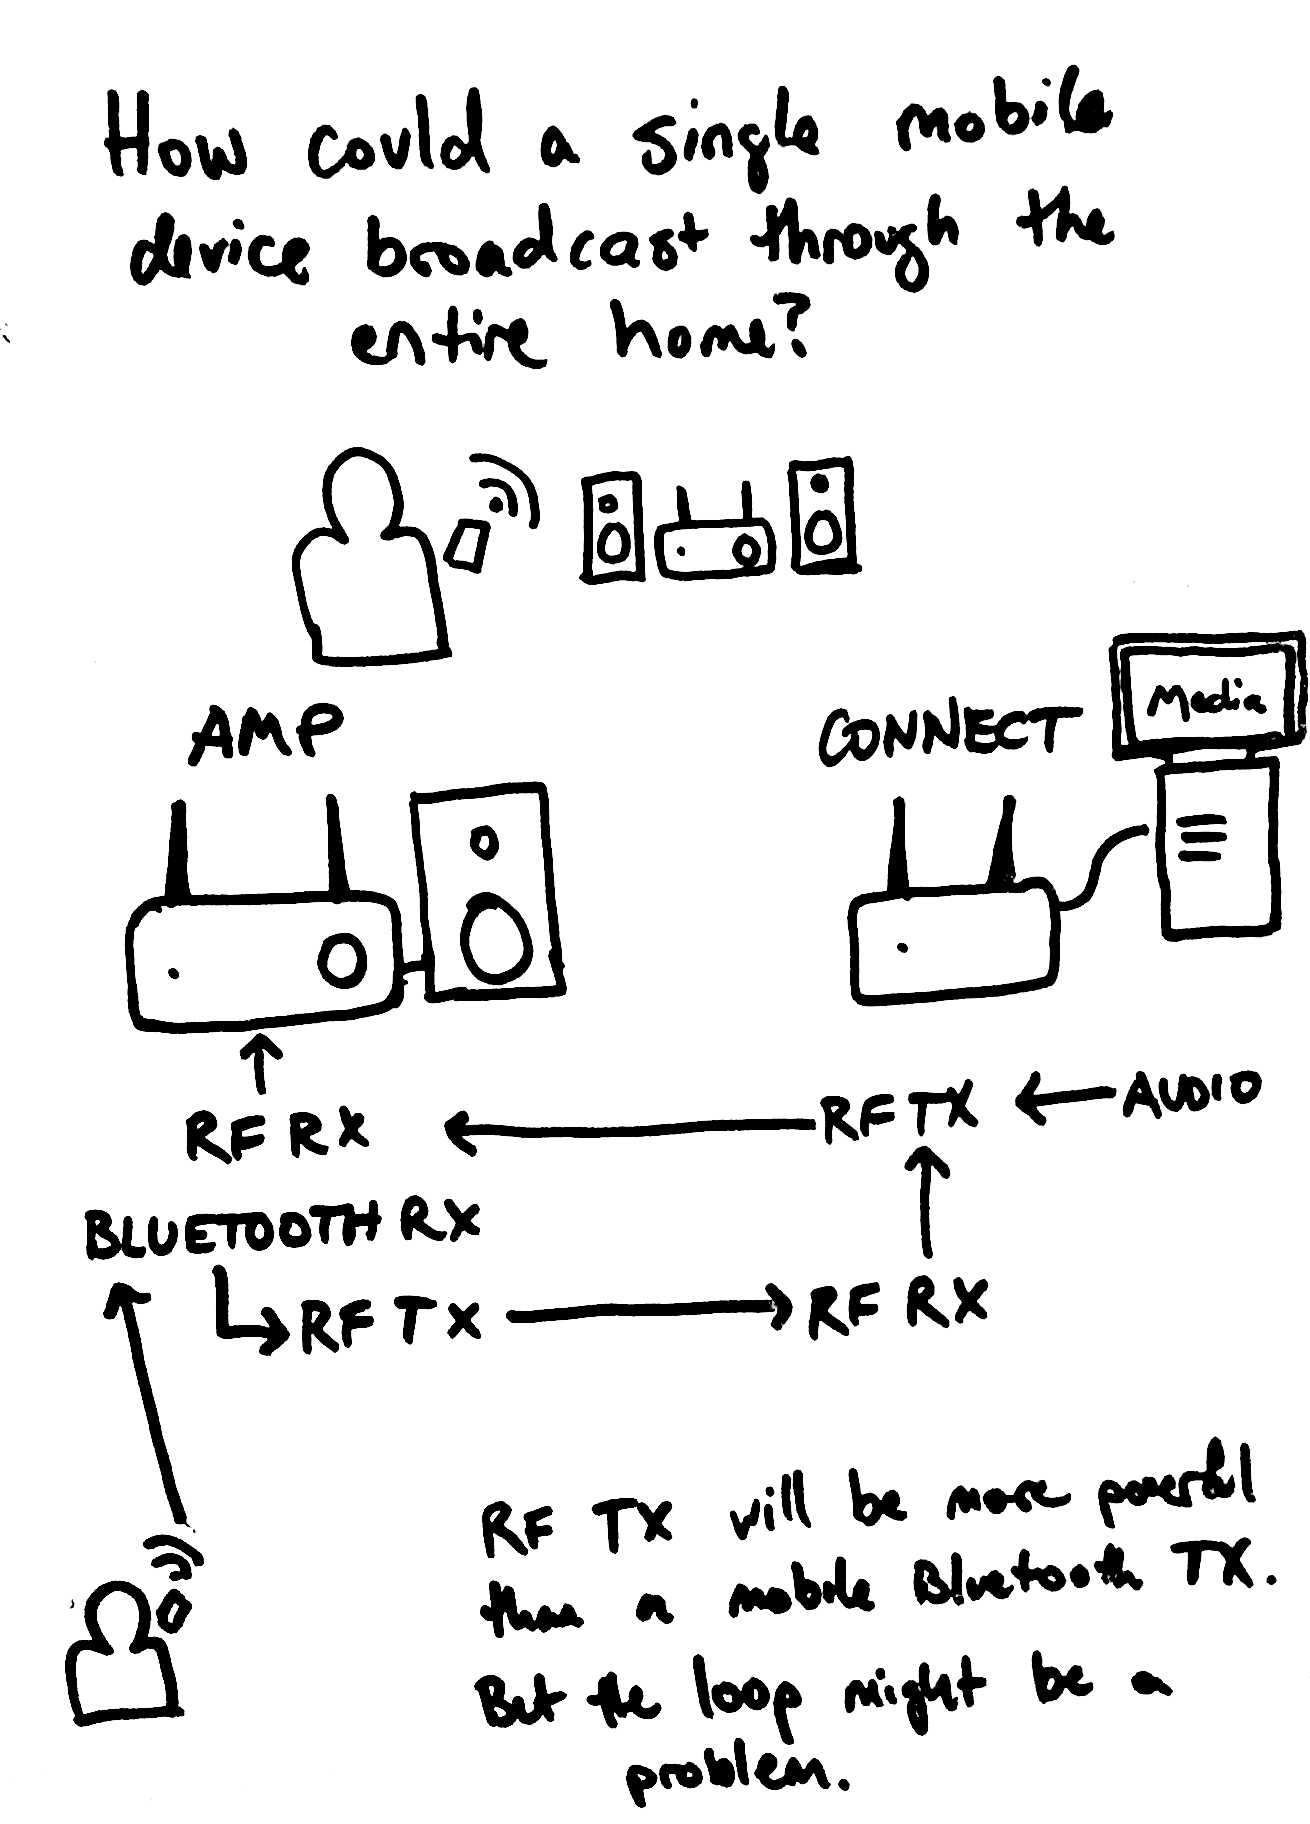 How could a single mobile
device broadcast through the
entire home?
AMP
CONNECT
Media
RF RX
RF TX
AUDIO
BLUETOOTH RX
RF TX
RF RX
RF TX will be more powerful
than a mobile Bluetooth TX.
But the loop might be a
problem.